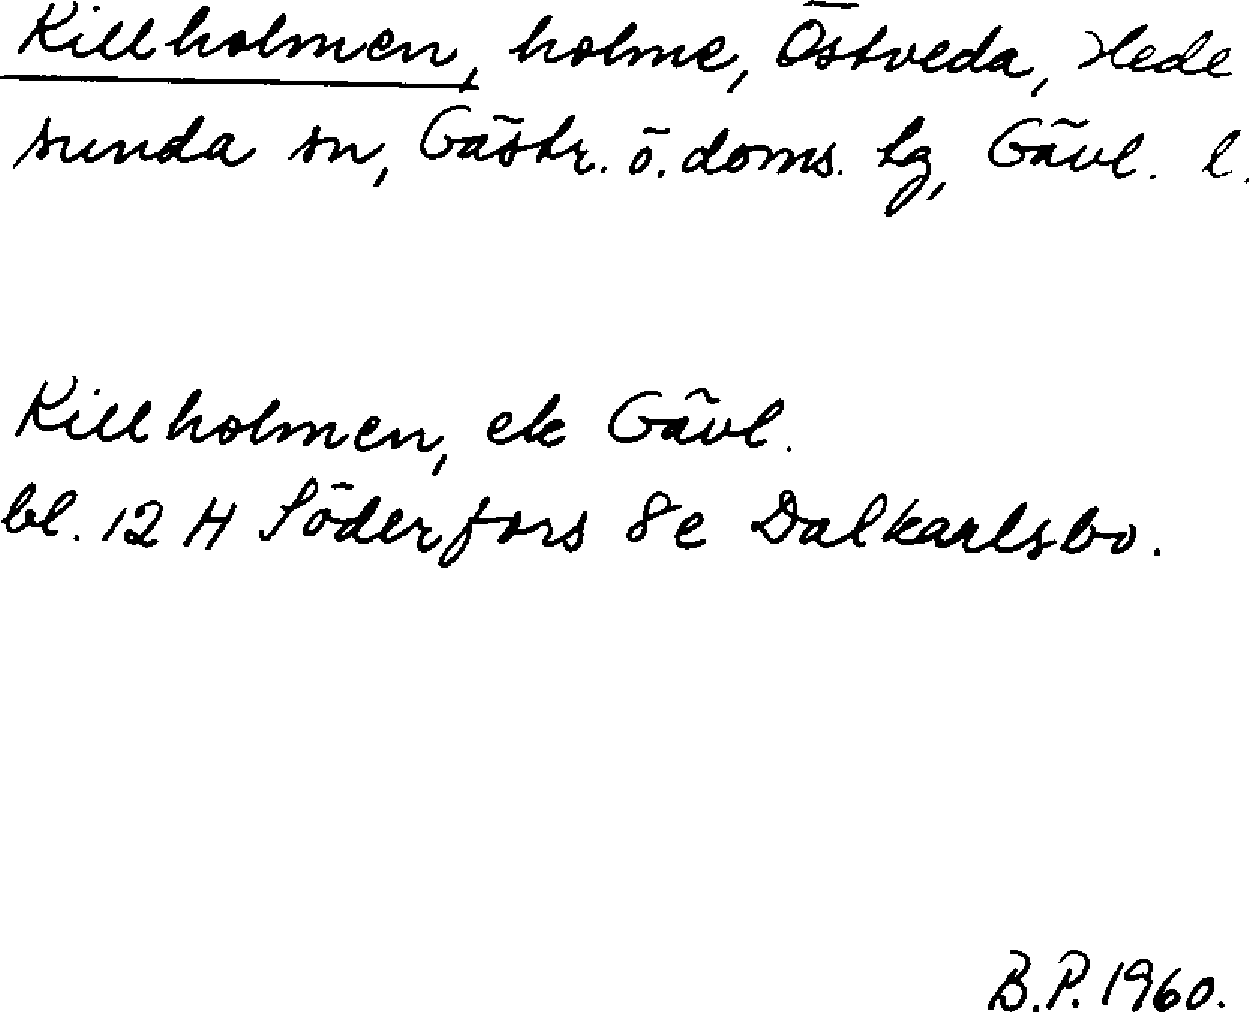 Killholmen, holme, Östveda, Hede
sunda sn, Gästr. ö. doms. tg, Gävl. l.
Killholmen, ek Gävl.
bl. 12 H Söderfors 8e Dalkarlsbo.
B.P. 1960.